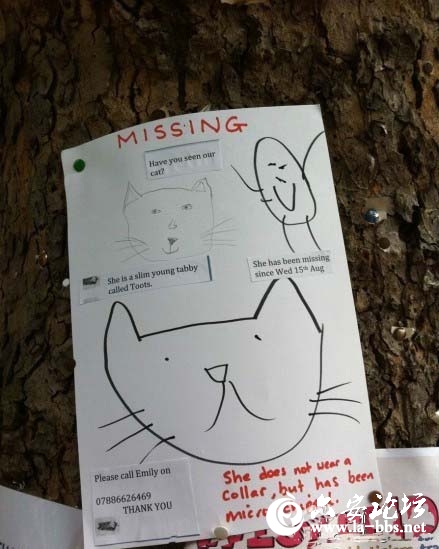 MISSING
Have you seen our
cat?
She is a slim young tabby
called Toots.
She has been missing
since Wed 15th Aug
Please call Emily on
07886626469
THANK YOU
She does not wear a
collar, but has been
micro
六安论坛
www.la-bbs.net